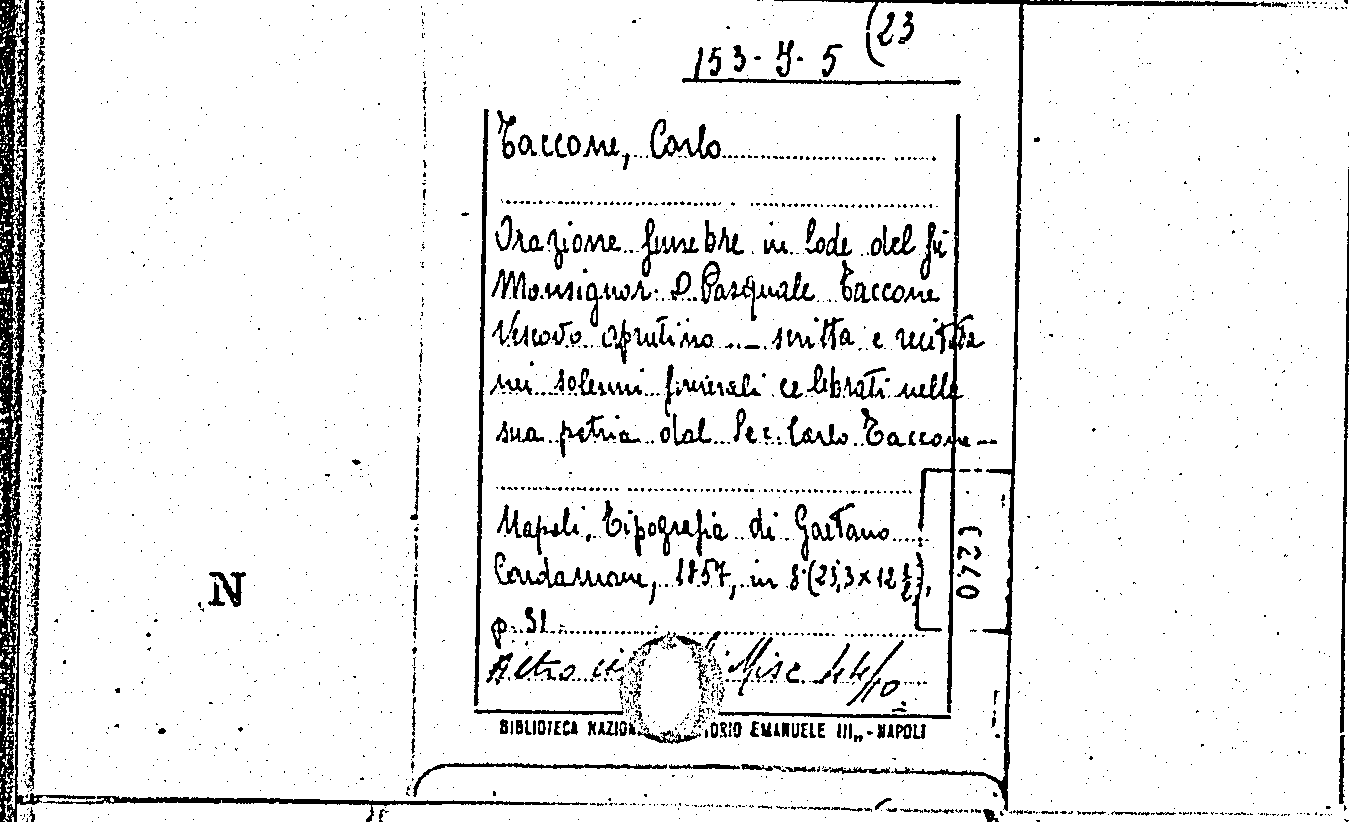 153-J-5 (23
Taccone, Carlo
Orazione funebre in lode del fu
Monsignor D. Pasquale Taccone
Vescovo aprutino ... scritta e recitata
nei solenni funerali celebrati nella
sua patria dal Sac. Carlo Taccone...
Napoli. Tipografia di Gaetano
1857, in 8° (
p. 31
Altro Misc
BIBLIOTECA NAZION ORIO EMANUELE III„ - NAPOLI
N